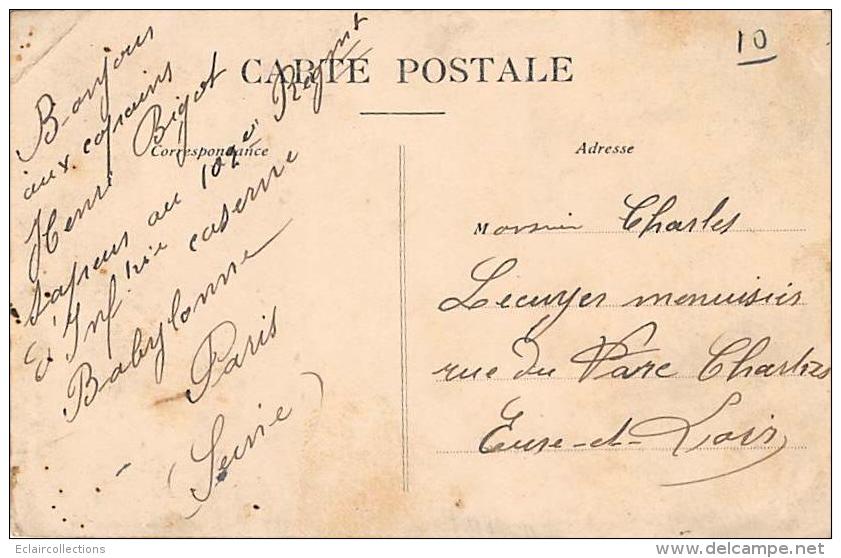 CARTE POSTALE
10
Correspondance
Adresse
Bonjour
aux copains
Henri Bigot
Sapeur au 102e Régmt
d'Infrie caserne
Babylonne
Paris
(Seine)
Monsieur Charles
Lecuyer menuisier
rue du Parc Chartres
Eure-et-Loir
Eclaircollections
delcampe.net